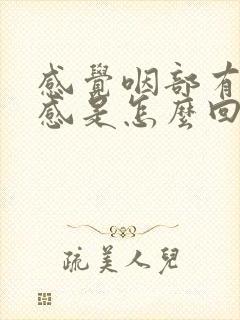 感覺咽部有
感是怎麼回
疏美人兒